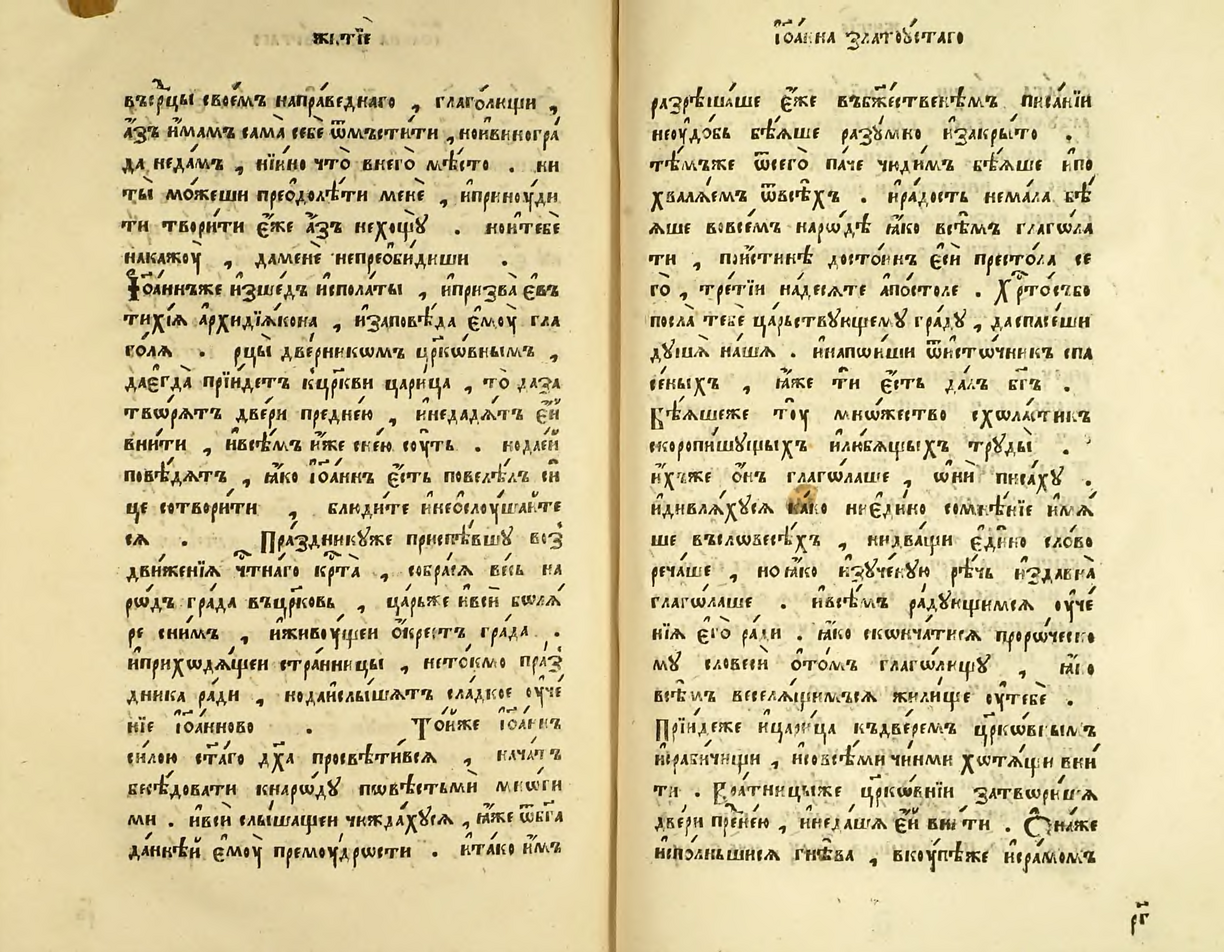 житїѐ
въср҃цы своє́мъ напра́веднаго , глаго́лющи ,
а҆́зъ и҆́мамъ сама̀ себѐ ѿмъсти́ти , ноивиногра́
да неда́мъ , нїи́но что̀ внего̀ мѣ́сто . ни
ты̀ мо́жеши преѡдолѣ́ти менѐ , ипринꙋ́ди
ти твори́ти є҆́же а҆́зъ нехощꙋ̀ . нои҆тебѐ
накажꙋ̀ , даменѐ непреоби́диши .
І҆ѡа́ннъже и҆зше́дъ и҆спола́ты , и҆призва̀ є҆въ
ти́хїѧ а҆рхидїѧ́кона , и҆заповѣ́да є҆мꙋ̀ гла
го́лѧ . рцы̀ две́рникѡмъ цр҃ко́внымъ ,
даєгда̀ прїи́детъ кцр҃кви цари́ца , то̀ даза
творѧ́тъ две́ри пре́днею , и҆недадѧ́тъ є҆́й
вни́ти , и҆всѣ́мъ и҆́же снею сꙋ́ть . нода́е҆й
повѣ́дѧтъ , ꙗ҆́ко і҆ѡа́ннъ є҆́сть повелѣ́лъ си́
це сотвори́ти , блюди́те и҆неѡслꙋ́шайте
сѧ . Пра́здникꙋже приспѣ́вшꙋ воз̾
дви́женїѧ чт҇наго кр҇та̀ , собра́сѧ весь на
рѡ́дъ гра́да въцр҃ковь , ца́рьже и҆всѝ бѡлѧ́
ре сни́мъ , и҆живꙋ́щеи ѡ҆́крестъ гра́да .
и҆прихѡдѧ́щеи стра́нницы , нето́кмо пра́з̾
дника ра́ди , нода́и҆слы́шѧтъ сла́дкое ᲂу҆че́
нїе і҆ѡа́нново . То́йже і҆ѡа́ннъ
си́лою ст҃а́го дх҃а просвѣти́всѧ , нача́тъ
бесѣ́довати кнарѡ́дꙋ пѡ́вѣстьми мнѡ́ги
ми . и҆всѝ слы́шащеи чюжда́хꙋсѧ , ꙗ҆́же ѿбг҃а
да́ннѣй є҆мꙋ̀ премꙋ́дрѡсти . и҆та́ко и҆̀мъ
і҆ѡа́нна златоꙋ́стаго
разрѣша́ше є҆́же въбж҃е́ственѣмъ писа́нїи
неꙋдо́бь бѣ́ѧше разꙋ́мно и҆закры́то .
тѣ́мъже ѿсего̀ па́че чю́димъ бѣ́ѧше и҆по
хвалѧ́емъ ѿвсѣ́хъ . и҆ра́дость нема́ла бѣ̀
ѧше вовсе́мъ нарѡ́дѣ ꙗ҆́ко всѣ́мъ глагѡ́ла
ти , пои҆́стинѣ досто́инъ є҆сѝ престо́ла се
го̀ , тре́тїи на́десѧте а҆по́столе . Хр҇то́събо
посла̀ тебѐ ца́рьствꙋющемꙋ гра́дꙋ , даспасе́ши
дꙋ́шѧ на́шѧ . и҆напѡи́ши ѿи҆стѡ́чникъ спа
се́ныхъ , ꙗ҆́же тѝ є҆́сть да́лъ бг҃ъ .
Бѣ́ѧшеже тꙋ̀ мнѡ́жество схѡла́стикъ
скоропи́шꙋщыхъ и҆любѧ́щыхъ трꙋды̀ .
и҆́хъже ѻ҆́нъ глагѡ́лаше , ѡ҆ни́ писа́хꙋ .
и҆дивлѧ́хꙋсѧ ка́ко ниє҆ди́но сомнѣ́нїе и҆мѧ́
ше въслѡвесѣ́хъ , нидва́щи є҆ди́но сло́во
реча́ше , ноꙗ҆́ко и҆зꙋ́ченꙋю рѣ́чь и҆зда́вна
глагѡ́лаше . и҆всѣ́мъ ра́дꙋющимсѧ ᲂу҆че́
нїѧ є҆го̀ ра́ди . ꙗ҆́ко скѡнча́тисѧ прорѡ́ческо
мꙋ словесѝ ѻ҆то́мъ глаго́лющꙋ , ꙗ҆́ко
всѣ́мъ веселѧ́щимъсѧ жили́ще ᲂу҆тебѐ .
Прїи́деже и҆цари́ца къдве́ремъ цр҃ко́внымъ
и҆рабичищи , и҆совсѣ́ми чи́нми хотѧ́щи вни́
ти . Вра́тницыже цр҃ко́внїи затвори́шѧ
две́ри пре́нею , и҆неда́шѧ є҆́й вни́ти . Ѻ҆на́же
и҆спо́лньшисѧ гнѣ́ва , вкꙋ́пѣже и҆сра́момъ
р҃г